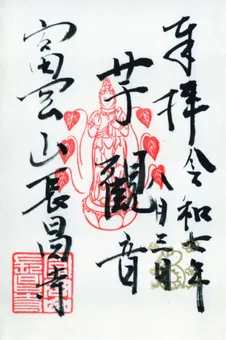 奉拝 令和七年
八月三日
芋観音
富雲山長昌寺